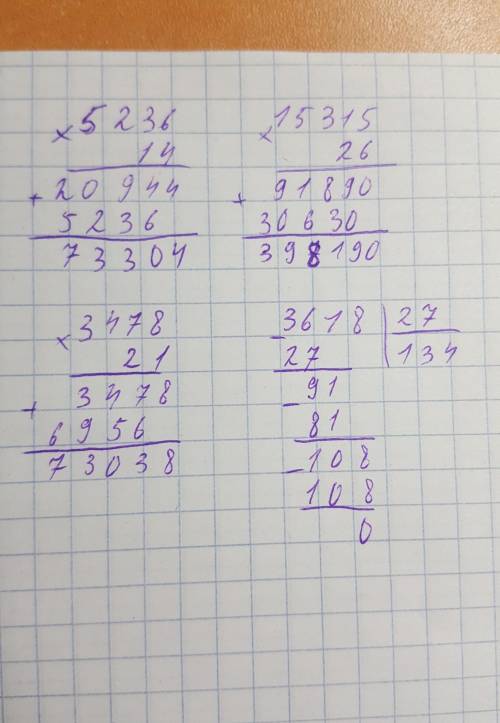 × 5236
14
+ 20944
5236
73304
× 15315
26
+ 91890
30630
398190
× 3478
21
+ 3478
6956
73038
- 3618 | 27
27 | 134
- 91
81
- 108
108
0